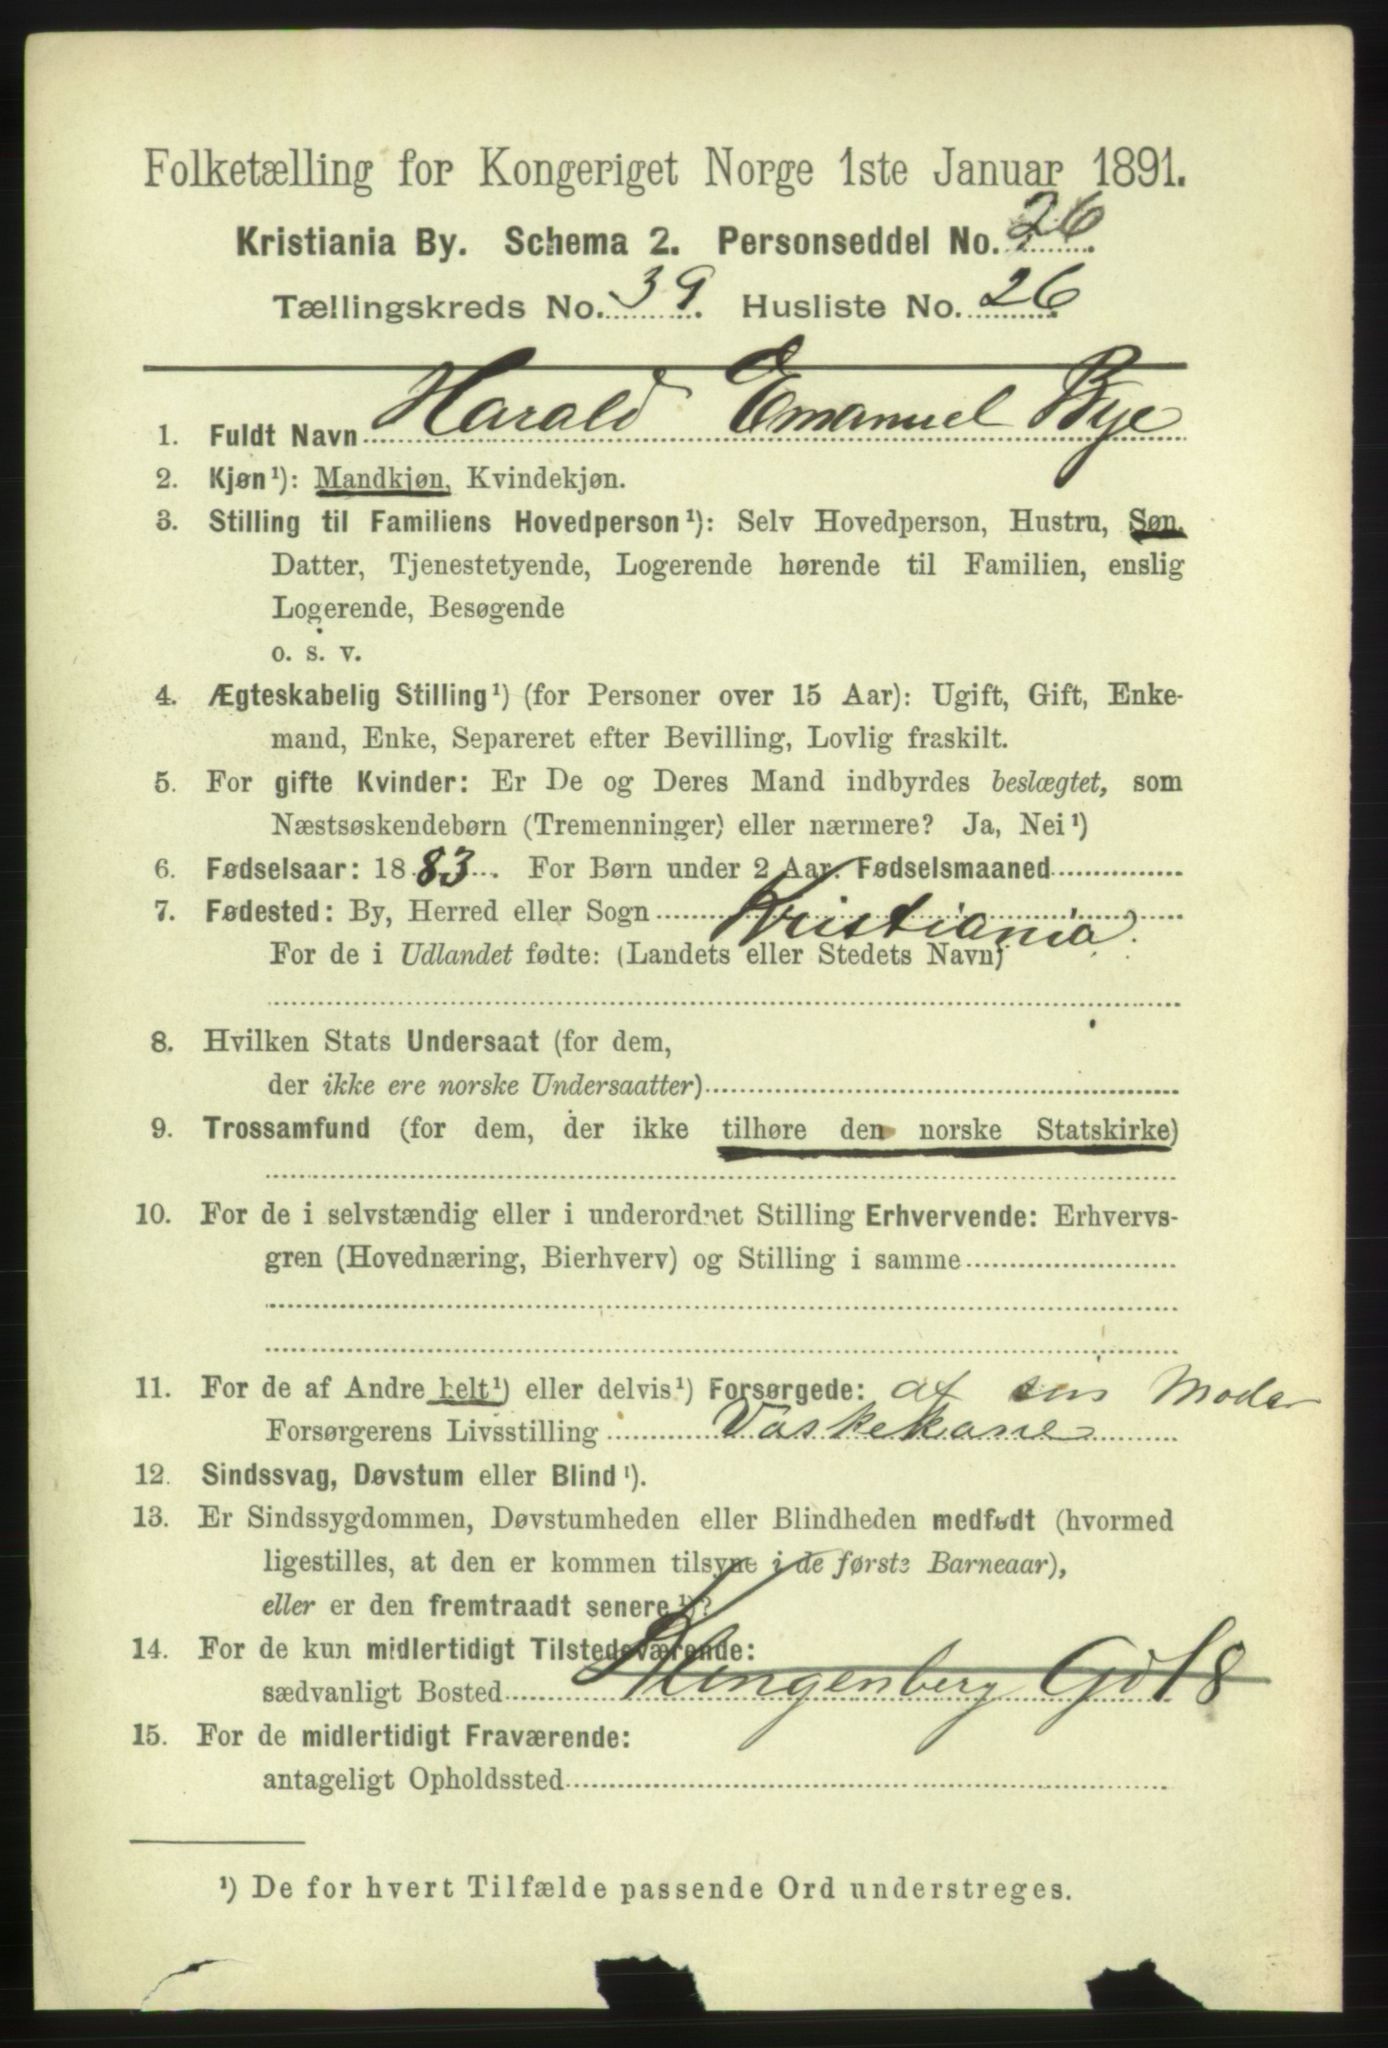 Folketælling for Kongeriget Norge 1ste Januar 1891.
Kristiania By. Schema 2. Personseddel No. 26.
Tællingskreds No. 39. Husliste No. 26.
1. Fuldt Navn Harald Emanuel Bye
2. Kjøn¹): Mandkjøn, Kvindekjøn.
3. Stilling til Familiens Hovedperson¹): Selv Hovedperson, Hustru, Søn,
Datter, Tjenestetyende, Logerende hørende til Familien, enslig
Logerende, Besøgende
o. s. v.
4. Ægteskabelig Stilling¹) (for Personer over 15 Aar): Ugift, Gift, Enke-
mand, Enke, Separeret efter Bevilling, Lovlig fraskilt.
5. For gifte Kvinder: Er De og Deres Mand indbyrdes beslægtet, som
Næstsøskendebørn (Tremenninger) eller nærmere? Ja, Nei¹)
6. Fødselsaar: 1883. For Børn under 2 Aar: Fødselsmaaned
7. Fødested: By, Herred eller Sogn Kristiania.
For de i Udlandet fødte: (Landets eller Stedets Navn)
8. Hvilken Stats Undersaat (for dem,
der ikke ere norske Undersaatter)
9. Trossamfund (for dem, der ikke tilhøre den norske Statskirke)
10. For de i selvstændig eller i underordnet Stilling Erhvervende: Erhvervs-
gren (Hovednæring, Bierhverv) og Stilling i samme
11. For de af Andre helt¹) eller delvis¹) Forsørgede: af sin Moder
Forsørgerens Livsstilling Vaskekone
12. Sindssvag, Døvstum eller Blind¹).
13. Er Sindssygdommen, Døvstumheden eller Blindheden medfødt (hvormed
ligestilles, at den er kommen tilsyne i de første Barneaar),
eller er den fremtraadt senere¹)?
14. For de kun midlertidigt Tilstedeværende:
sædvanligt Bosted Klingenberg Gd 18
15. For de midlertidigt Fraværende:
antageligt Opholdssted
¹) De for hvert Tilfælde passende Ord understreges.